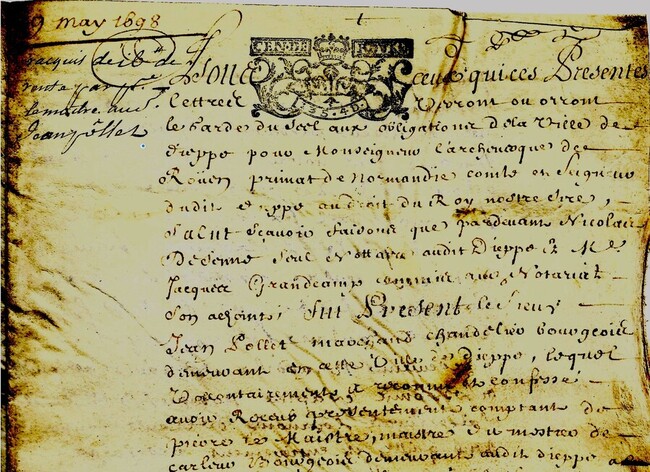 9 may 1698
acquis de 18ᵗᵗ de
rente par
lemaitre
Jean pollet
GEN·DE ROUEN
A Tous ceux qui ces Presentes
lettres Verront ou orront
le Garde du Scel aux obligations de la Ville de
dieppe pour Monseigneur l'archevesque de
Roüen primat de Normandie comte et Seigneur
dudit dieppe au droit du Roy nostre Sire,
Salut scavoir faisons que pardevant Nicolas
Decenne seul Nottaire audit Dieppe & Mᵉ
Jacques Grandcamp commis au Notariat
son adjoint; Fut Present le Sieur
Jean Pollet marchand chandelier bourgeois
demeurant en cette Ville de dieppe, lequel
Vollontairement a reconnu et confessé
avoir Receu presentement comptant de
pierre le Maistre, maistre du mestier de
carleur Bourgeois demeurant audit dieppe a